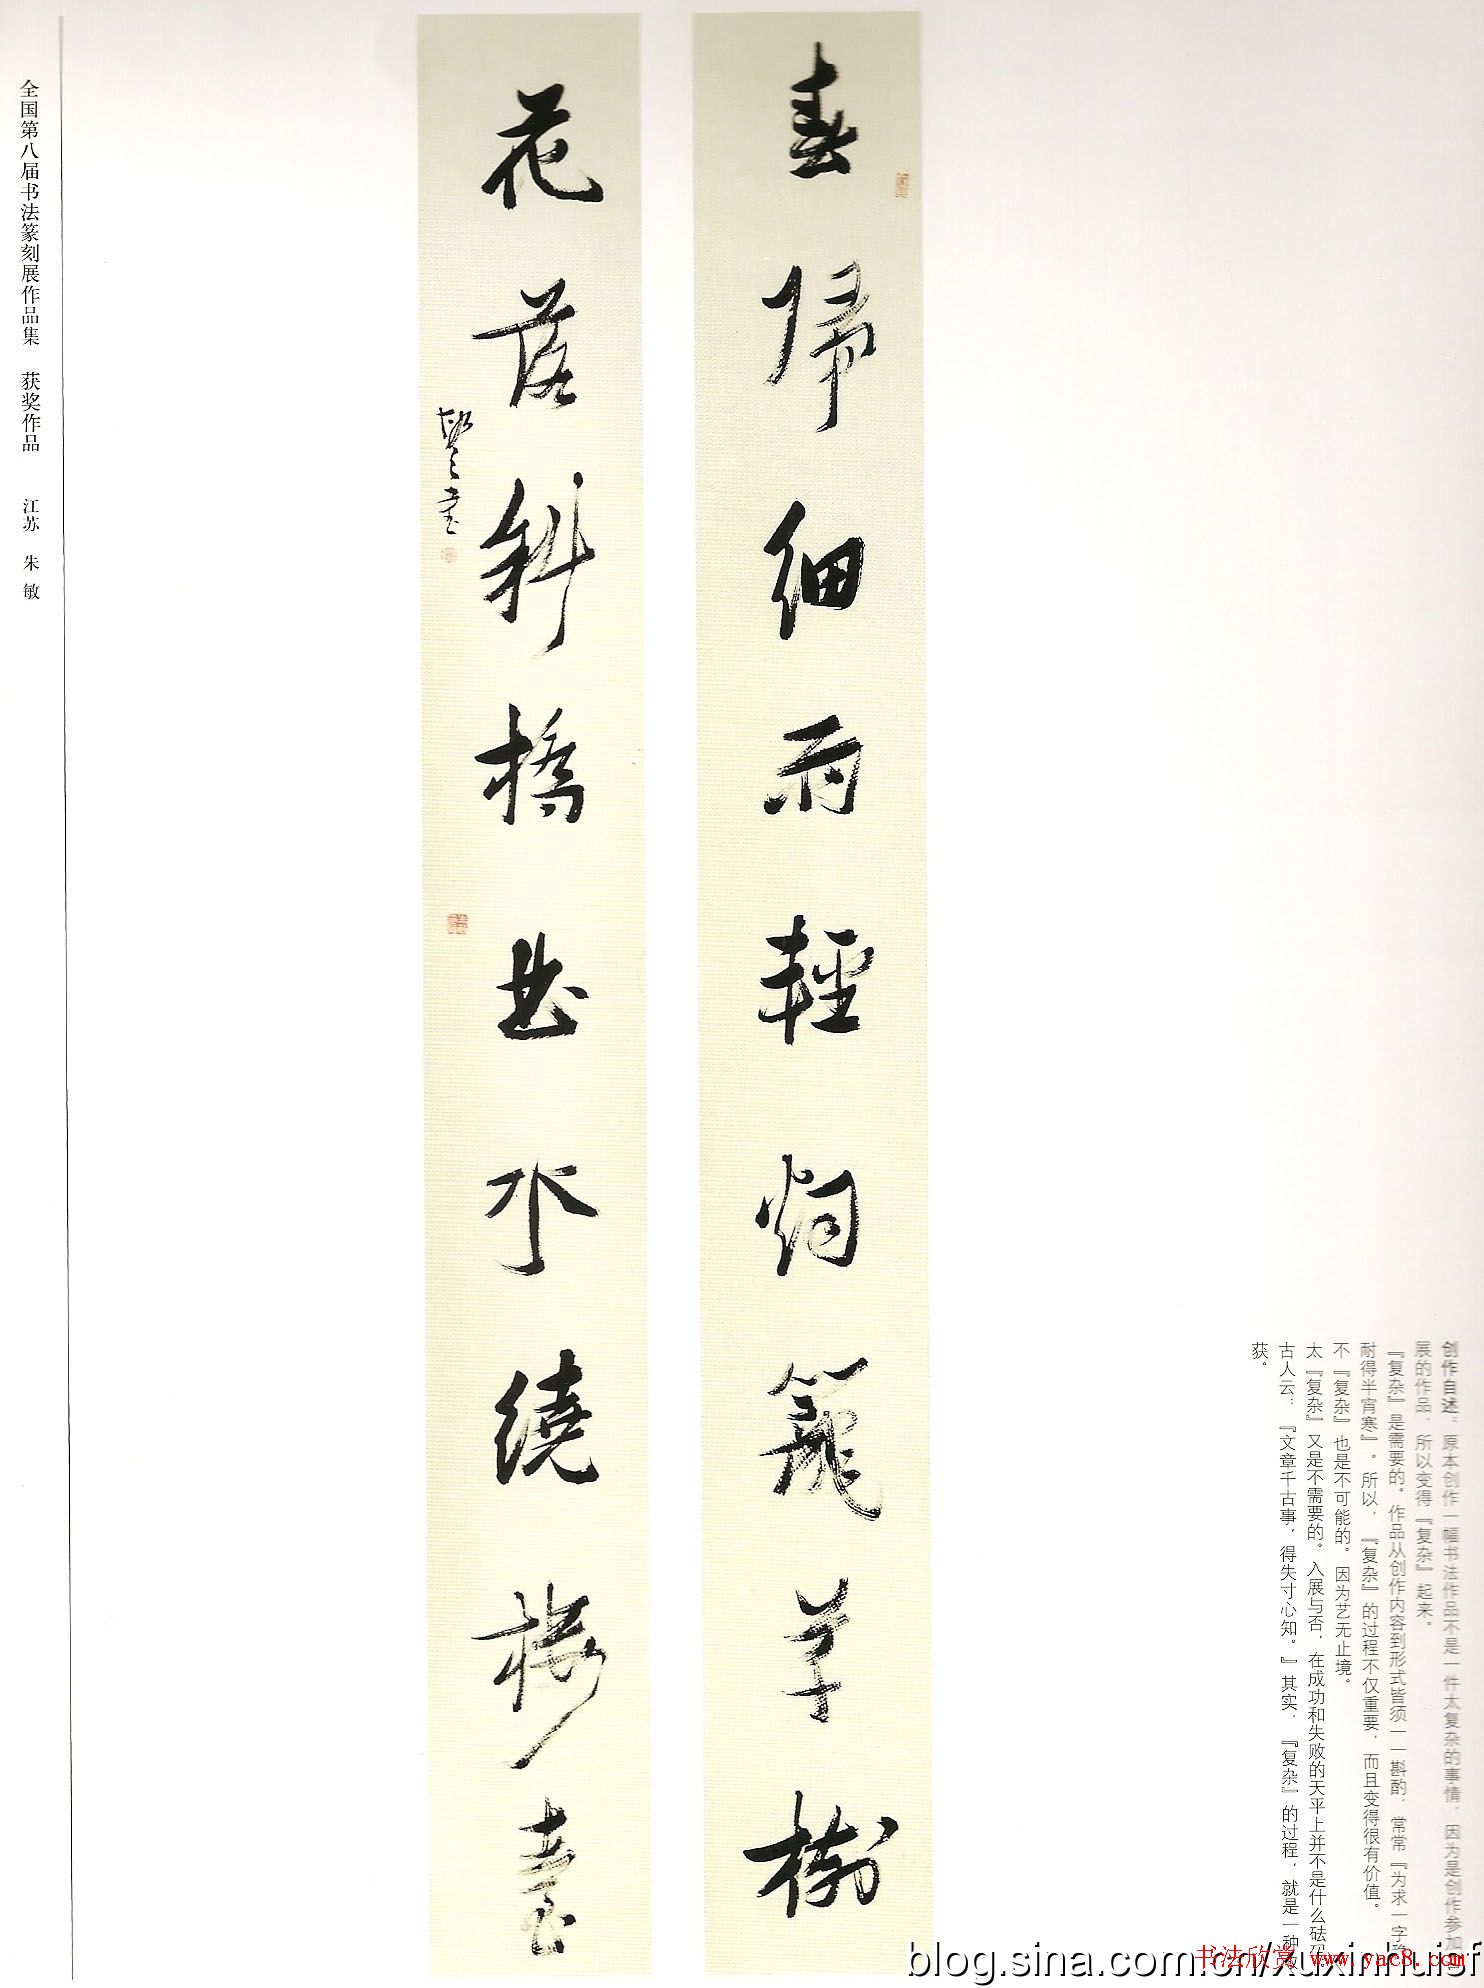 春歸細雨輕烟籠草樹
花落斜橋曲水繞樓臺
全国第八届书法篆刻展作品集 获奖作品 江苏 朱敏
创作自述：原本创作一幅书法作品不是一件太复杂的事情，因为是创作参加
展的作品，所以变得『复杂』起来。
『复杂』是需要的。作品从创作内容到形式皆须一一斟酌，常常『为求一字
耐得半宵寒』。所以，『复杂』的过程不仅重要，而且变得很有价值。
不『复杂』也是不可能的。因为艺无止境。
太『复杂』又是不需要的。入展与否，在成功和失败的天平上并不是什么砝
古人云：『文章千古事，得失寸心知。』其实，『复杂』的过程，就是一种
获。
书法欣赏 www.yac8.com
blog.sina.com.cn/xuxinhuisf